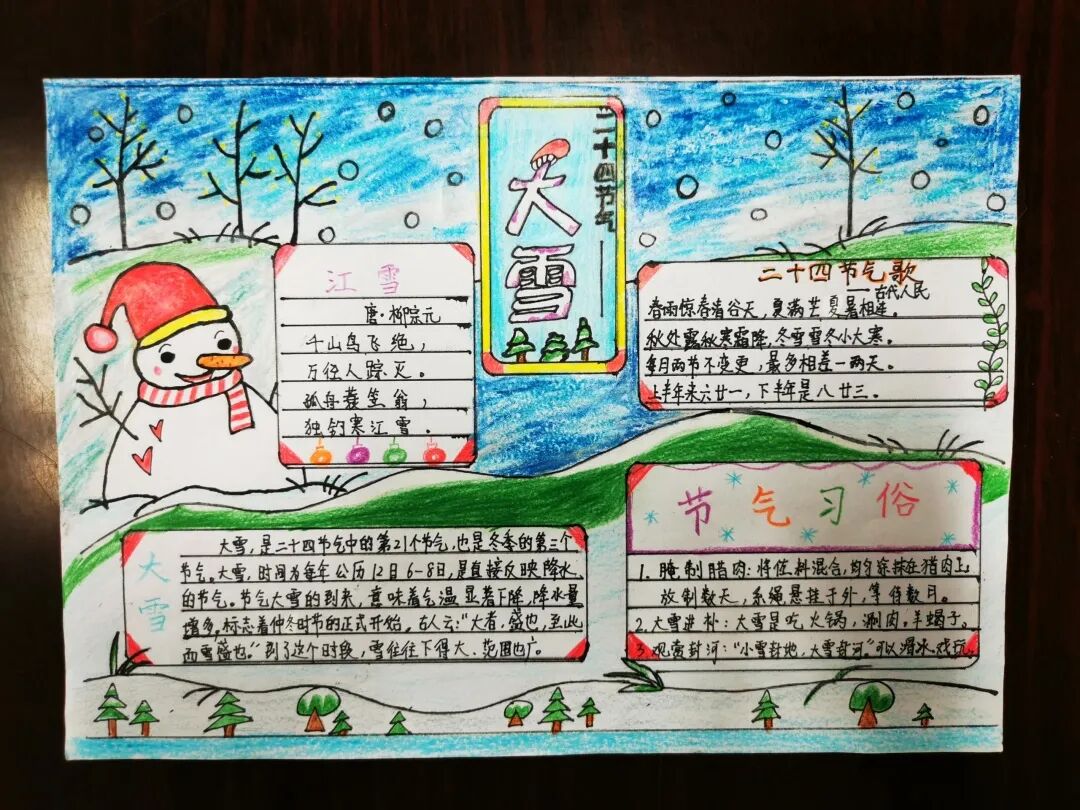 二十四节气——
大雪
江雪
唐·柳宗元
千山鸟飞绝，
万径人踪灭。
孤舟蓑笠翁，
独钓寒江雪。
二十四节气歌
——古代人民
春雨惊春清谷天，夏满芒夏暑相连。
秋处露秋寒霜降，冬雪雪冬小大寒。
每月两节不变更，最多相差一两天。
上半年来六廿一，下半年是八廿三。
大雪
大雪，是二十四节气中的第21个节气，也是冬季的第三个
节气。大雪，时间为每年公历12日6-8日，是直接反映降水
的节气。节气大雪的到来，意味着气温显著下降，降水量
增多。标志着仲冬时节的正式开始。古人云：“大者，盛也，至此
而雪盛也。”到了这个时段，雪往往下得大、范围也广。
节气习俗
1. 腌制腊肉：将佐料混合，均匀涂抹在猪肉上
放制数天，系绳悬挂于外，等待数月。
2. 大雪进补：大雪是吃火锅，涮肉。羊蝎子。
3. 观赏封河：“小雪封地，大雪封河”可以滑冰戏玩。